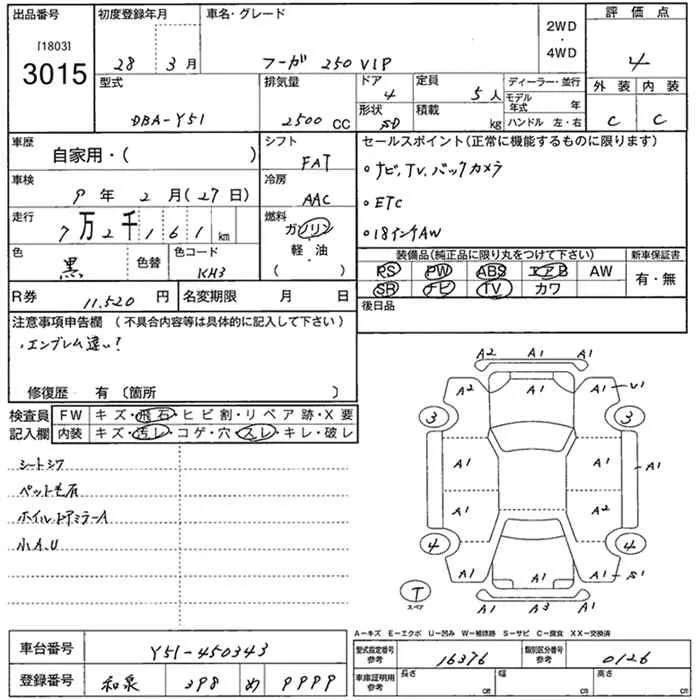 出品番号
[1803]
3015
初度登録年月
28 3月
車名・グレード
フーガ 250 VIP
2WD
・
4WD
評価点
4
外装 内装
C C
型式
DBA-Y51
排気量
2500 CC
ドア
4
形状
SD
定員
5人
積載
kg
ディーラー・並行
モデル年式 年
ハンドル 左・右
車歴
自家用・( )
シフト
FAT
セールスポイント(正常に機能するものに限ります)
・ナビ,TV,バックカメラ
・ETC
・18インチAW
車検
9年 2月(27日)
冷房
AAC
走行
7万2千161km
燃料
ガソリン
軽・油
( )
色
黒
色替
色コード
KH3
装備品(純正品に限り丸をつけて下さい)
PS PW ABS エアB AW
SR ナビ TV カワ
新車保証書
有・無
R券 11,520円
名変期限 月 日
後日品
注意事項申告欄 (不具合内容等は具体的に記入して下さい)
・エンブレム違い?
修復歴 有 〔箇所 〕
検査員
記入欄
FW キズ・飛石・ヒビ割・リペア跡・X要
内装 キズ・汚レ・コゲ・穴・スレ・キレ・破レ
シートシワ
ペット毛有
ホイル.ドアミラーA
小A.U
A2 A1 A1
A2 A1 A1 U1
3 3
A1 A1 A1
A1 A2
4 4
A1 A1 A1 S1
T
スペア
A1 A3 A1
A−キズ E−エクボ U−凹み W−補修跡 S−サビ C−腐食 XX−交換済
車台番号
Y51-450343
型式指定番号
参考
16376
類別区分番号
参考
0126
登録番号
和泉 398 め 9999
車庫証明用
参考
長さ cm
幅 cm
高さ cm